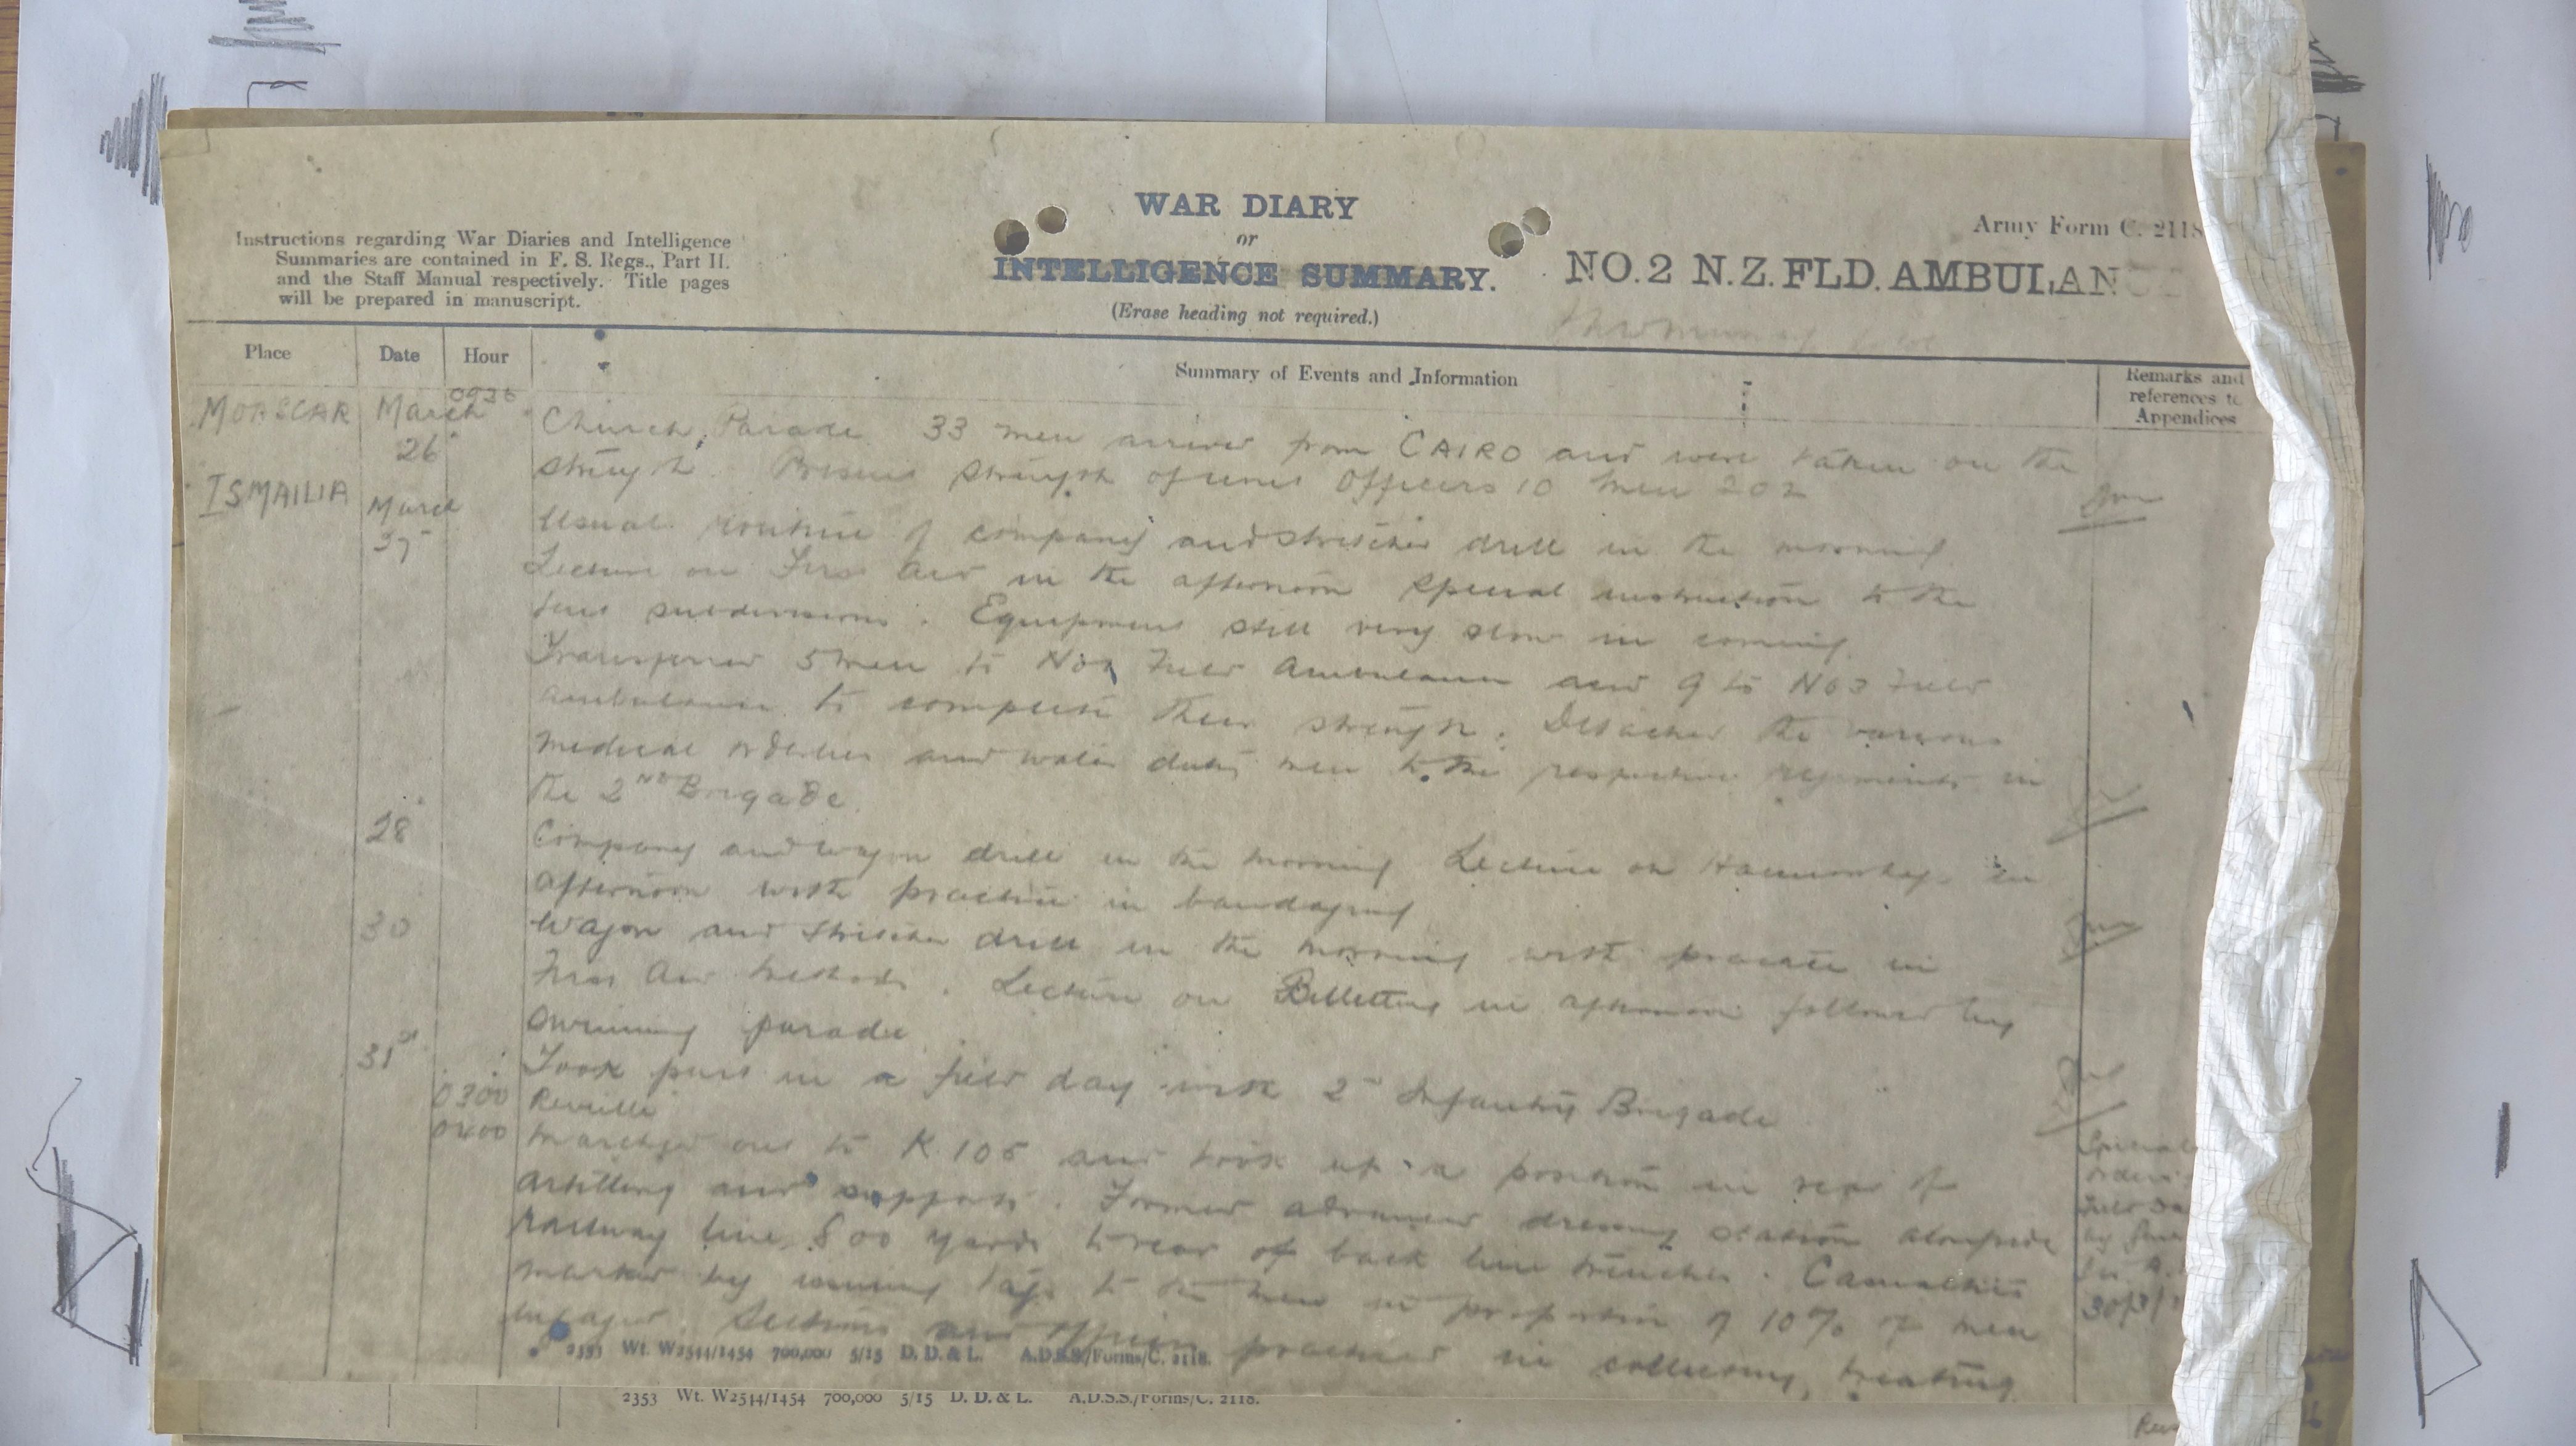 WAR DIARY
or
INTELLIGENCE SUMMARY.
(Erase heading not required.)
Instructions regarding War Diaries and Intelligence
Summaries are contained in F. S. Regs., Part II.
and the Staff Manual respectively. Title pages
will be prepared in manuscript.
Army Form C. 2118
NO. 2 N.Z. FLD. AMBULANCE
Place Date Hour Summary of Events and Information Remarks and
references to
Appendices
MOASCAR March 26 Church Parade. 33 men arrived from CAIRO and were taken on the
strength. Present strength of unit Officers 10 men 202
ISMAILIA March 27 Usual routine of company and stretcher drill in the morning
Lecture on First Aid in the afternoon special instruction to the
tent subdivisions. Equipment still very slow in coming.
Transferred 5 men to No 1 Field Ambulance and 9 to No 3 Field
Ambulance to complete their strength. Detached the various
medical orderlies and water duty men to the respective regiments in
the 2ND Brigade.
28 Company and wagon drill in the morning Lecture on in
afternoon with practice in bandaging
30 Wagon and stretcher drill in the morning with practice in
First Aid methods. Lecture on Billetting in afternoon followed by
swimming parade
31st Took part in a field day with 2nd Infantry Brigade
0300 Reveille
0400 Marched out to K.105 and took up a position in rear of
artillery and supports. Formed advanced dressing station alongside
railway line 800 yards to rear of back line trenches. Casualties
marked by issuing tags to the men in proportion of 10% of men
engaged. Sections and officers practised in collecting, treating
Special
orders
Field Da
by
30/3/
2353 Wt. W2544/1454 700,000 5/15 D. D. & L. A.D.S.S./Forms/C. 2118.
2353 Wt. W2544/1454 700,000 5/15 D. D. & L. A.D.S.S./Forms/C. 2118.